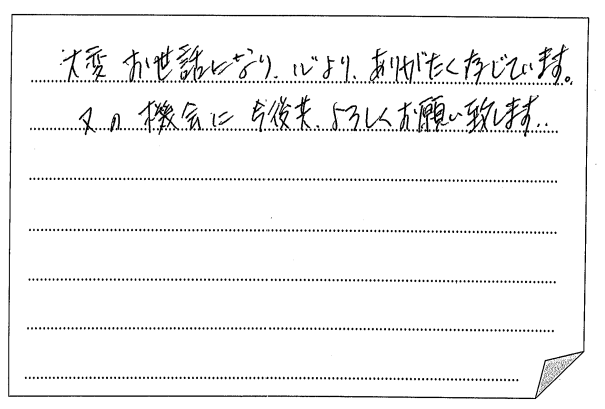 大変お世話になり、心より、ありがたく存じています。
又の機会に今後共、よろしくお願い致します。